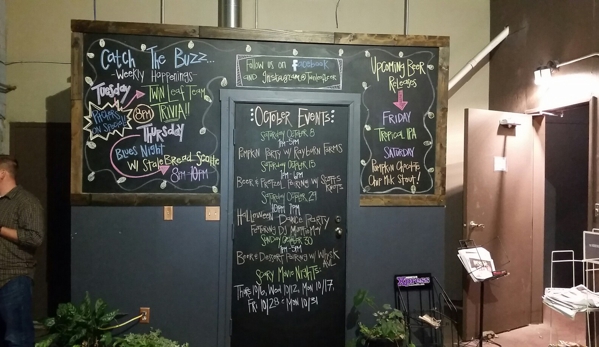 Catch The Buzz...
~Weekly Happenings~
Tuesday
Twin Leaf Team
TRIVIA!!
8PM
PITCHERS
ON SPECIAL
THURSDAY
Blues Night
w/ Stale Bread Scottie
8PM-10PM
Follow us on facebook
AND Instagram
October Events
Saturday October 8
Pumpkin Party w/ Rayburn Farms
Saturday October 15
Beer & Pretzel Pairing w/
Saturday October 29
Halloween Dance Party
Featuring DJ
Sunday October 30
Beer & Dessert Pairing w/ Whisk
Scary Movie Nights:
Thurs 10/6, Wed 10/12, Mon 10/17,
Fri 10/28 & Mon 10/31
Upcoming Beer
Releases
FRIDAY
Tropical IPA
SATURDAY
Pumpkin
Chip Milk Stout!
Xpress